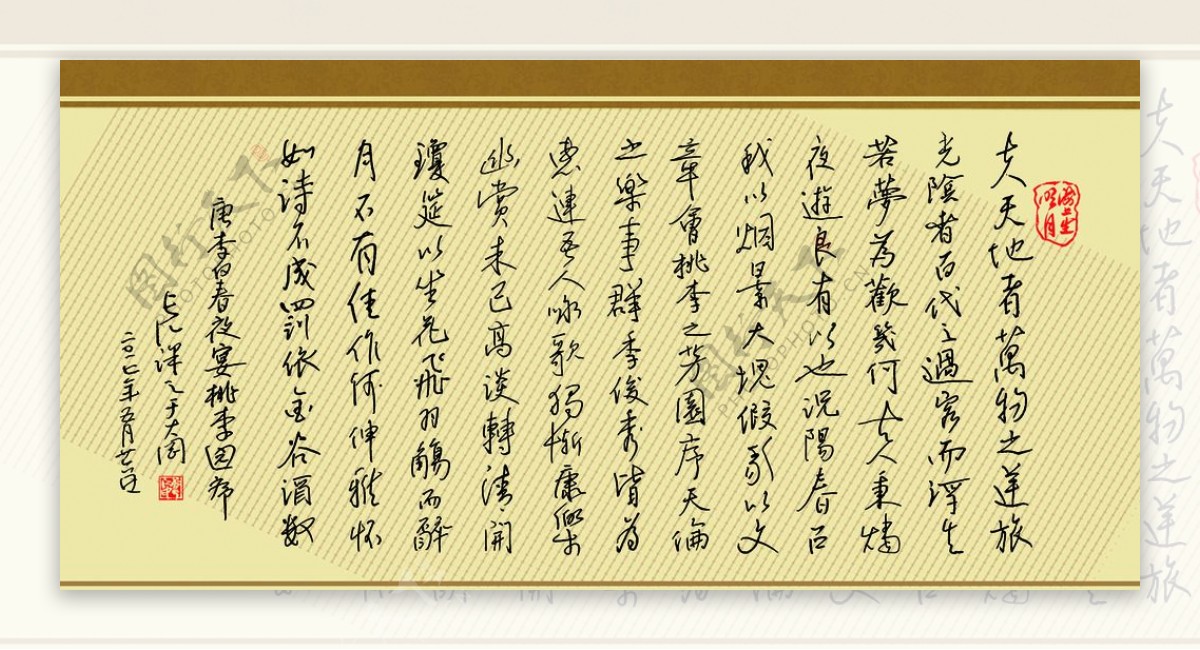 夫天地者萬物之逆旅
光陰者百代之過客而浮生
若夢為歡幾何古人秉燭
夜遊良有以也況陽春召
我以烟景大塊假我以文
章會桃李之芳園序天倫
之樂事群季俊秀皆為
惠連吾人咏歌獨慚康樂
幽賞未已高談轉清開
瓊筵以坐花飛羽觴而醉
月不有佳作何伸雅怀
如詩不成四罰依金谷酒数
唐李白春夜宴桃李园序
二〇一七年五月廿二日
图行天下